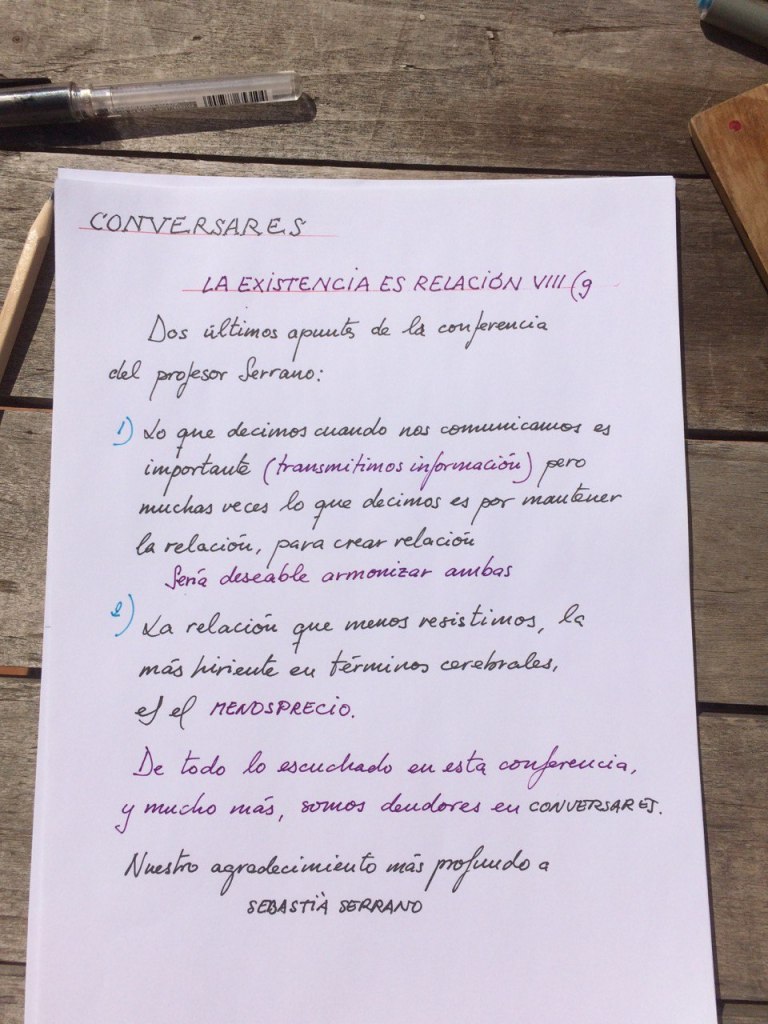 CONVERSARES
LA EXISTENCIA ES RELACIÓN VIII (g
Dos últimos apuntes de la conferencia
del profesor Serrano:
1) Lo que decimos cuando nos comunicamos es
importante (transmitimos información) pero
muchas veces lo que decimos es por mantener
la relación, para crear relación
Sería deseable armonizar ambas
2) La relación que menos resistimos, la
más hiriente en términos cerebrales,
es el MENOSPRECIO.
De todo lo escuchado en esta conferencia,
y mucho más, somos deudores en CONVERSARES.
Nuestro agradecimiento más profundo a
SEBASTIÀ SERRANO